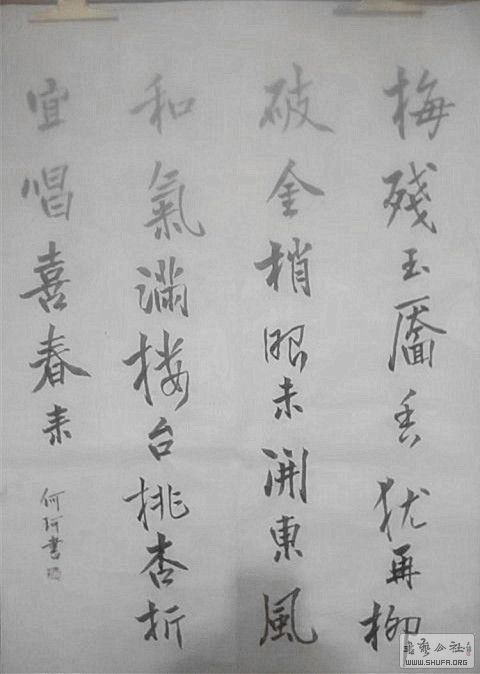 梅殘玉靨香犹再柳
破金梢眼未開東風
和氣滿楼台桃杏折
宜唱喜春来
何珂書
書藝公社
WWW.SHUFA.ORG